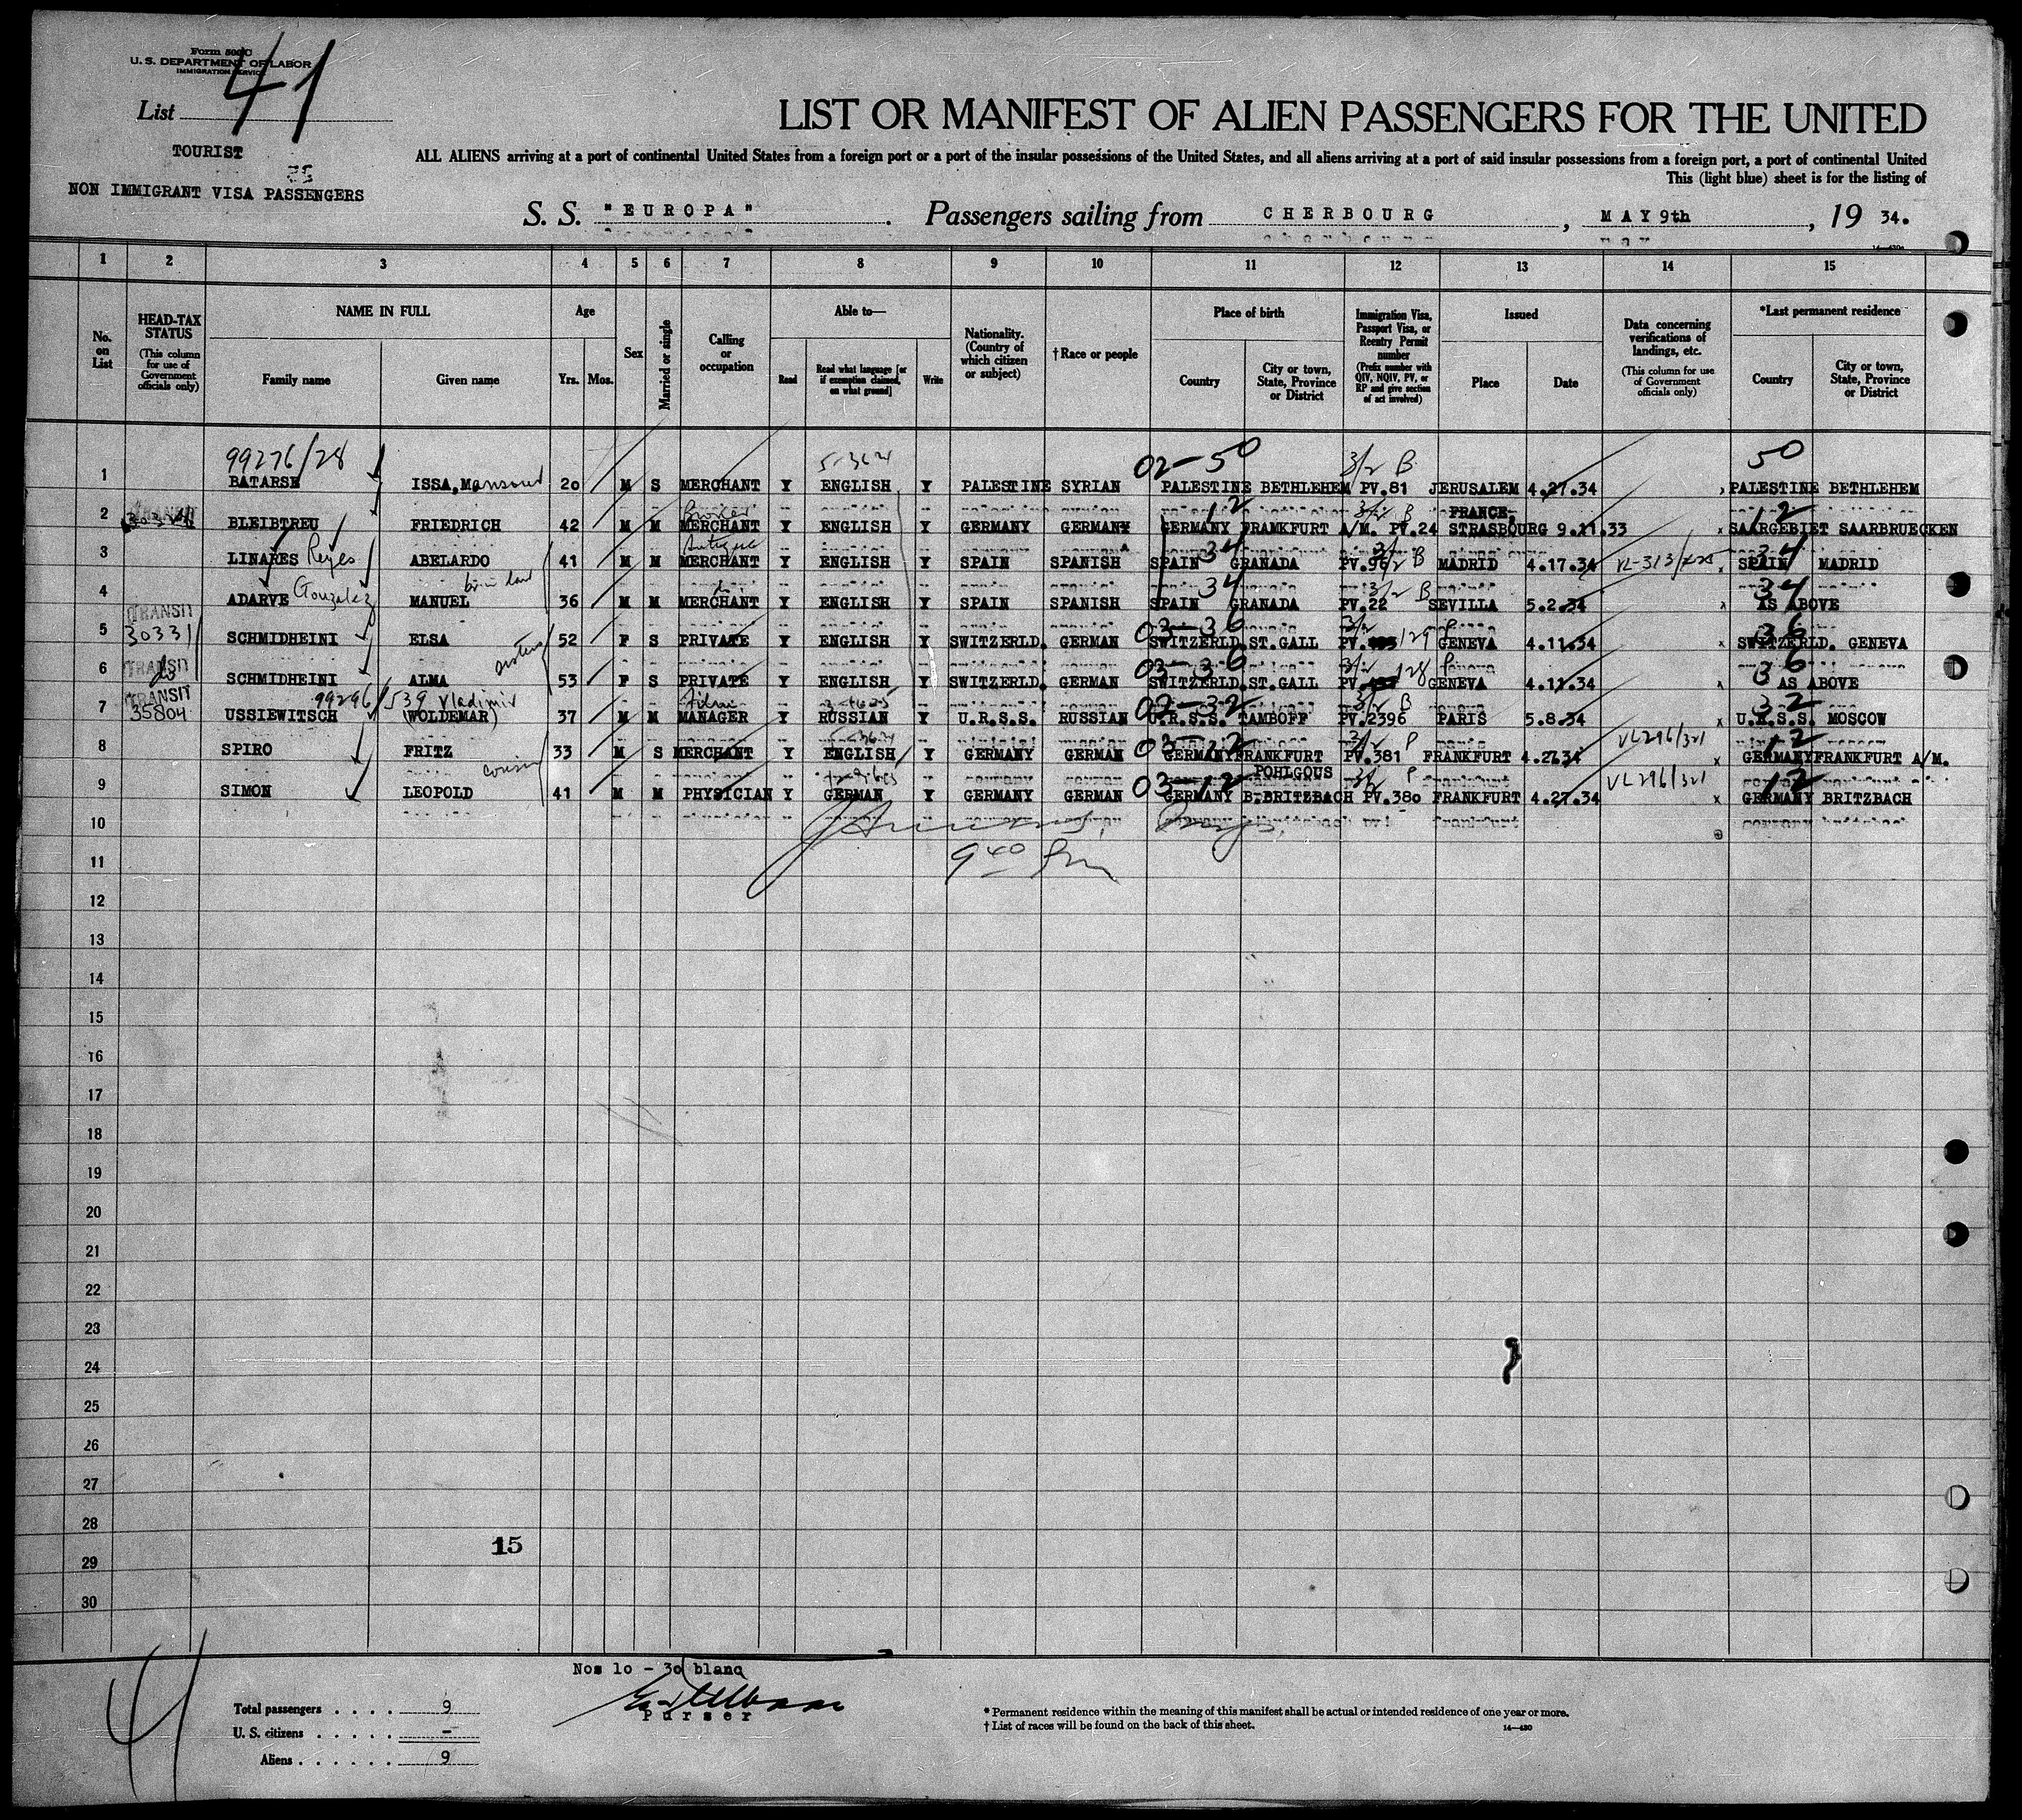 Form 500 C
U. S. DEPARTMENT OF LABOR
IMMIGRATION SERVICE
List 41
TOURIST
NON IMMIGRANT VISA PASSENGERS
LIST OR MANIFEST OF ALIEN PASSENGERS FOR THE UNITED
ALL ALIENS arriving at a port of continental United States from a foreign port or a port of the insular possessions of the United States, and all aliens arriving at a port of said insular possessions from a foreign port, a port of continental United
This (light blue) sheet is for the listing of
S. S. "EUROPA". Passengers sailing from CHERBOURG, MAY 9th, 19 34.
1 2 3 4 5 6 7 8 9 10 11 12 13 14 15
No. on List
HEAD-TAX STATUS
(This column for use of Government officials only)
NAME IN FULL
Family name Given name
Age
Yrs. Mos.
Sex
Married or single
Calling or occupation
Able to—
Read Read what language [or if exemption claimed, on what ground] Write
Nationality. (Country of which citizen or subject)
† Race or people
Place of birth
Country City or town, State, Province or District
Immigration Visa, Passport Visa, or Reentry Permit number
(Prefix number with QIV, NQIV, PV, or RP and give section of act involved)
Issued
Place Date
Data concerning verifications of landings, etc.
(This column for use of Government officials only)
*Last permanent residence
Country City or town, State, Province or District
99276/28 5-3621 02-50 3/2 B 50
1 BATARSE ISSA, Mansour 20 M S MERCHANT Y ENGLISH Y PALESTINE SYRIAN PALESTINE BETHLEHEM PV.81 JERUSALEM 4.27.34 PALESTINE BETHLEHEM
Broker 12 3/2 B FRANCE, 12
2 BLEIBTREU FRIEDRICH 42 M M MERCHANT Y ENGLISH Y GERMANY GERMANY GERMANY FRAMKFURT A/M. PV.24 STRASBOURG 9.11.33 x SAARGEBIET SAARBRUECKEN
Antique 34 3/2 B 34
3 LINARES Reyes ABELARDO 41 M M MERCHANT Y ENGLISH Y SPAIN SPANISH SPAIN GRANADA PV.96 MADRID 4.17.34 x SPAIN MADRID
bro in law 34 3/2 B 34
4 ADARVE Gonzalez MANUEL 36 M M MERCHANT Y ENGLISH Y SPAIN SPANISH SPAIN GRANADA PV.22 SEVILLA 5.2.34 x AS ABOVE
TRANSIT 03-36 3/2 36
5 30331 SCHMIDHEINI ELSA 52 F S PRIVATE Y ENGLISH Y SWITZERLD. GERMAN SWITZERLD. ST. GALL PV. 129 P GENEVA 4.11.34 x SWITZERLD. GENEVA
TRANSIT do sisters 03-36 3/2 36
6 SCHMIDHEINI ALMA 53 F S PRIVATE Y ENGLISH Y SWITZERLD. GERMAN SWITZERLD. ST. GALL PV. 128 P GENEVA 4.11.34 x AS ABOVE
TRANSIT 99296/539 Vladimir Film 02-32 3/2 B 32
7 35804 USSIEWITSCH (WOLDEMAR) 37 M M MANAGER Y RUSSIAN Y U.R.S.S. RUSSIAN U.R.S.S. TAMBOFF PV.2396 PARIS 5.8.34 x U.R.S.S. MOSCOW
5-3621 03-12 3/2 P VL296/321 12
8 SPIRO FRITZ 33 M S MERCHANT Y ENGLISH Y GERMANY GERMAN GERMANY FRANKFURT PV.381 FRANKFURT 4.27.34 x GERMANY FRANKFURT A/M.
cousin 03-12 POHLGOUS 3/2 P VL296/321 12
9 SIMON LEOPOLD 41 M M PHYSICIAN Y GERMAN Y GERMANY GERMAN GERMANY B-BRITZBACH PV.380 FRANKFURT 4.27.34 x GERMANY BRITZBACH
10
11 9 40 Pm
12
13
14
15
16
17
18
19
20
21
22
23
24
25
26
27
28
15
29
30
Nos 10 - 30 blanq
Purser
Total passengers . . . . 9
U. S. citizens . . . . . -
Aliens . . . . . . 9
* Permanent residence within the meaning of this manifest shall be actual or intended residence of one year or more.
† List of races will be found on the back of this sheet.
14—430